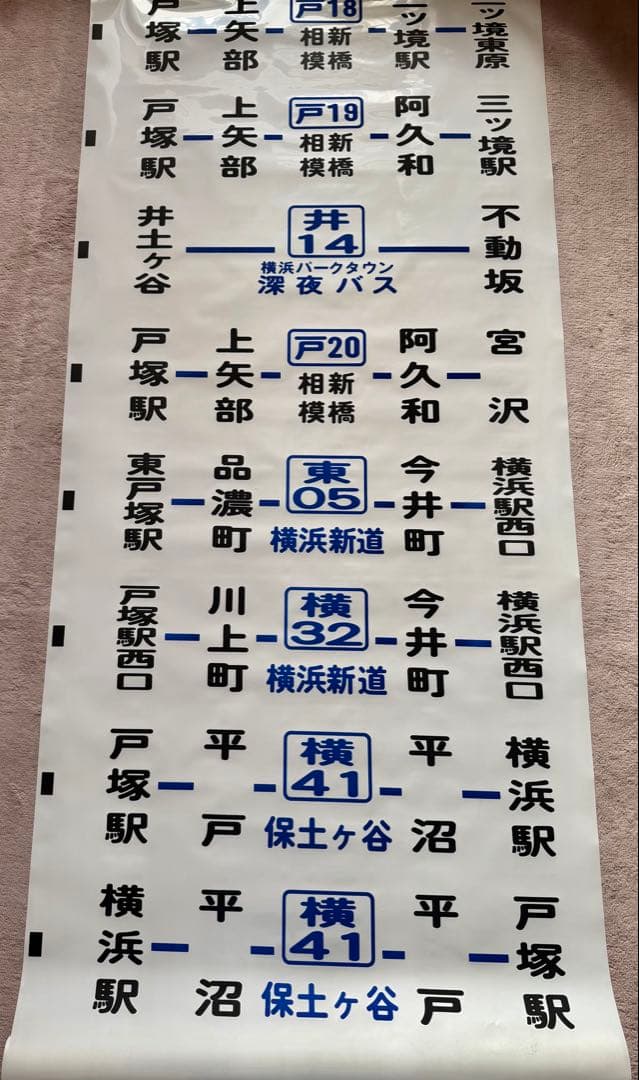 戸塚駅 上矢部 戸18 相模 新橋 三ツ境駅 三ツ境東原
戸塚駅 上矢部 戸19 相模 新橋 阿久和 三ツ境駅
井土ヶ谷 井14 横浜パークタウン 深夜バス 不動坂
戸塚駅 上矢部 戸20 相模 新橋 阿久和 宮沢
東戸塚駅 品濃町 東05 横浜新道 今井町 横浜駅西口
戸塚駅西口 川上町 横32 横浜新道 今井町 横浜駅西口
戸塚駅 平戸 横41 保土ヶ谷 平沼 横浜駅
横浜駅 平沼 横41 保土ヶ谷 平戸 戸塚駅